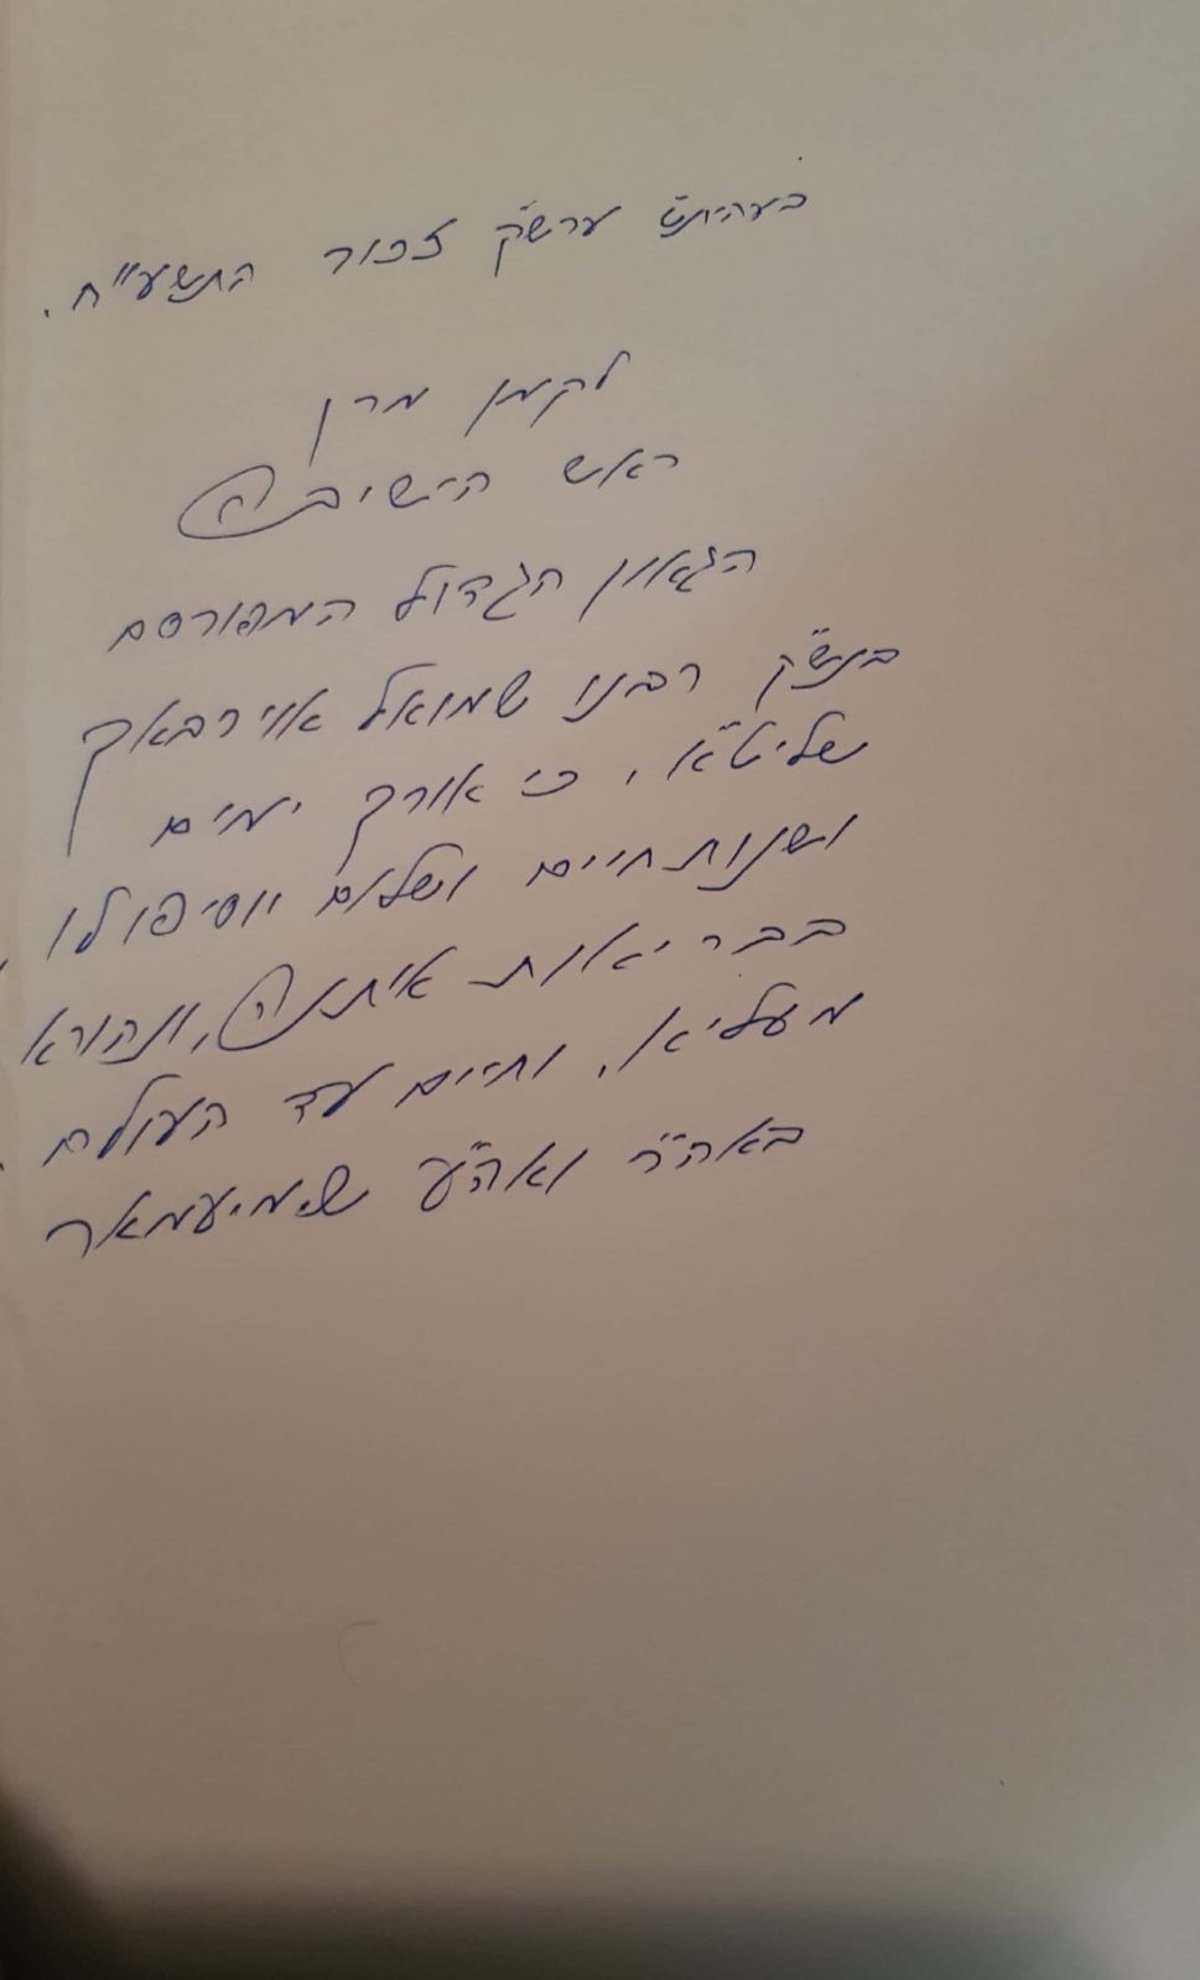 בעהית"ש ערש"ק זכור התשע"ח.
לקמן מרן
ראש הישיבה
הגאון הגדול המפורסם
בנש"ק רבנו שמואל אוירבאך
שליט"א, כי אורך ימים
ושנות חיים ושלום יוסיפו לו,
בבריאות איתנה, ונהורא
מעליא, וחיים עד העולם.
באה"ר ואה"ע